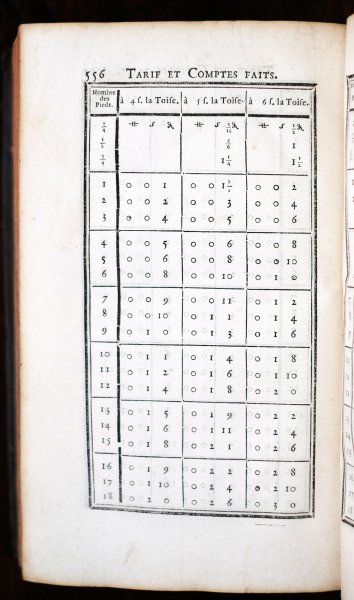 556 TARIF ET COMPTES FAITS.
Nombre des Pieds. à 4 ſ. la Toiſe. à 5 ſ. la Toiſe. à 6 ſ. la Toiſe.
1/4 ₶ ſ ₰ 5/12 ₶ ſ ₰ 1/2
1/2 5/6 1
3/4 1 1/4 1 1/2
1 0 0 1 0 0 1 2/3 0 0 2
2 0 0 2 0 0 3 0 0 4
3 0 0 4 0 0 5 0 0 6
4 0 0 5 0 0 6 0 0 8
5 0 0 6 0 0 8 0 0 10
6 0 0 8 0 0 10 0 1 0
7 0 0 9 0 0 11 0 1 2
8 0 0 10 0 1 1 0 1 4
9 0 1 0 0 1 3 0 1 6
10 0 1 1 0 1 4 0 1 8
11 0 1 2 0 1 6 0 1 10
12 0 1 4 0 1 8 0 2 0
13 0 1 5 0 1 9 0 2 2
14 0 1 6 0 1 11 0 2 4
15 0 1 8 0 2 1 0 2 6
16 0 1 9 0 2 2 0 2 8
17 0 1 10 0 2 4 0 2 10
18 0 2 0 0 2 6 0 3 0